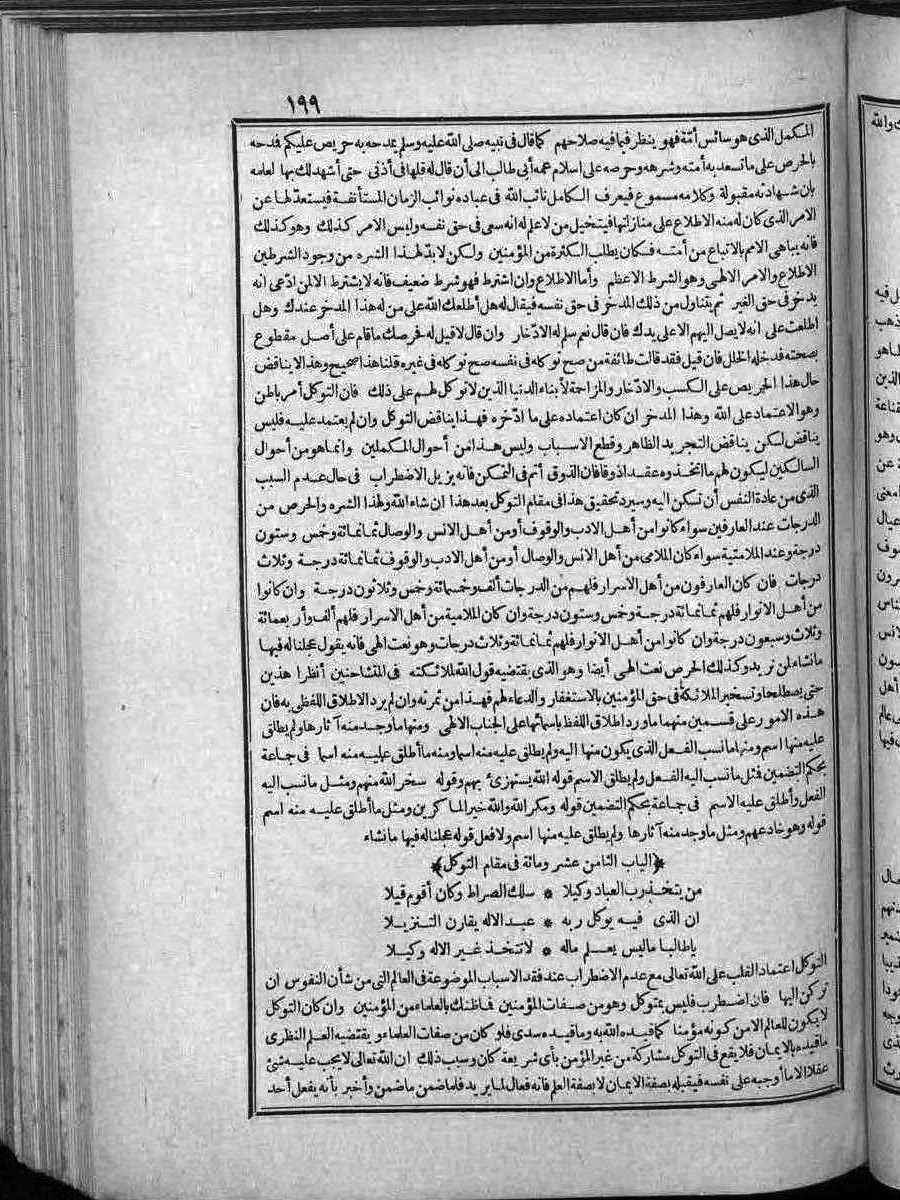 ١٩٩
المكمل الذى هو سائس أمّة فهو ينظر فيما فيه صلاحهم كما قال فى نبيه صلى الله عليه وسلم يمدحه به حريص عليكم فمدحه
بالحرص على ما تسعد به أمته وشرهه وحرصه على اسلام عمه أبى طالب الى أن قال له قلها فى أذنى حتى أشهد لك بها لعلمه
بان شهادته مقبولة وكلامه مسموع فيعرف الكامل نائب الله فى عباده نوائب الزمان المستأنفة فيستعدّ لها عن
الامر الذى كان له منه الاطلاع على منازلها فيتخيل من لا علم له انه سعى فى حق نفسه وليس الامر كذلك وهو كذلك
فانه يباهى الامم بالاتباع من أمته فكان يطلب الكثرة من المؤمنين ولكن لا بدّ لهذا الشره من وجود الشرطين
الاطلاع والامر الالهى وهو الشرط الاعظم وأما الاطلاع وان اشترط فهو شرط ضعيف فانه لا يشترط الا لمن ادّعى انه
يدخر فى حق الغير ثم يتناول من ذلك المدخر فى حق نفسه فيقال له هل أطلعك الله على من له هذا المدخر عندك وهل
اطلعت على انه لا يصل اليهم الا على يدك فان قال نعم سلم له الادّخار وان قال لا قيل له فحرصك ما قام على أصل مقطوع
بصحته فدخله الخلل فان قيل فقد قالت طائفة من صح توكله فى نفسه صح توكله فى غيره قلنا هذا صحيح وهذا لا يناقض
حال هذا الحريص على الكسب والادّخار والمزاحمة لأبناء الدنيا الذين لا توكل لهم على ذلك فان التوكل أمر باطن
وهو الاعتماد على الله وهذا المدخر ان كان اعتماده على ما ادّخره فهذا يناقض التوكل وان لم يعتمد عليه فليس
يناقض لكن يناقض التجريد الظاهر وقطع الاسباب وليس هذا من أحوال المكملين وانما هو من أحوال
السالكين ليكون لهم ما اتخذوه عقدا ذوقا فان الذوق أتم فى التمكن فانه يزيل الاضطراب فى حال عدم السبب
الذى من عادة النفس أن تسكن اليه وسيرد تحقيق هذا فى مقام التوكل بعد هذا ان شاء الله ولهذا الشره والحرص من
الدرجات عند العارفين سواء كانوا من أهل الادب والوقوف أو من أهل الانس والوصال ثمانمائة وخمس وستون
درجة وعند الملامتية سواء كان الملامى من أهل الانس والوصال أو من أهل الادب والوقوف ثمانمائة درجة وثلاث
درجات فان كان العارفون من أهل الاسرار فلهم من الدرجات ألف وخمسمائة وخمس وثلاثون درجة وان كانوا
من أهل الانوار فلهم ثمانمائة درجة وخمس وستون درجة وان كان الملامية من أهل الاسرار فلهم ألف وأربعمائة
وثلاث وسبعون درجة وان كانوا من أهل الانوار فلهم ثمانمائة وثلاث درجات وهو نعت الهى فانه يقول عجلنا له فيها
ما نشاء لمن نريد وكذلك الحرص نعت الهى أيضا وهو الذى يقتضيه قول الله لملائكته فى المتشاحنين أنظرا هذين
حتى يصطلحا وتسخير الملائكة فى حق المؤمنين بالاستغفار والدعاء لهم فهذا من ثمرته وان لم يرد الاطلاق اللفظى به فان
هذه الامور على قسمين منها ما ورد اطلاق اللفظ باسمائها على الجناب الالهى ومنها ما وجد منه آثارها ولم يطلق
عليه منها اسم ومنها ما نسب الفعل الذى يكون منها اليه ولم يطلق عليه منه اسما ومنه ما أطلق عليه منه اسما فى جماعة
بحكم التضمين فمثل ما نسب اليه الفعل ولم يطلق الاسم قوله الله يستهزئ بهم وقوله سخر الله منهم ومثل ما نسب اليه
الفعل وأطلق عليه الاسم فى جماعة بحكم التضمين قوله ومكر الله والله خير الماكرين ومثل ما أطلق عليه منه اسم
قوله وهو خادعهم ومثل ما وجد منه آثارها ولم يطلق عليه منها اسم ولا فعل قوله عجلنا له فيها ما نشاء
﴿الباب الثامن عشر ومائة فى مقام التوكل﴾
من يتخذ رب العباد وكيلا * سلك الصراط وكان أقوم قيلا
ان الذى فيه يوكل ربه * عبد الاله يقارن التنزيلا
يا طالبا ما ليس يعلم ماله * لا تتخذ غير الاله وكيلا
التوكل اعتماد القلب على الله تعالى مع عدم الاضطراب عند فقد الاسباب الموضوعة فى العالم التى من شأن النفوس ان
تركن اليها فان اضطرب فليس بمتوكل وهو من صفات المؤمنين فما ظنك بالعلماء من المؤمنين وان كان التوكل
لا يكون للعالم الا من كونه مؤمنا كما قيده الله به وما قيده سدى فلو كان من صفات العلماء ويقتضيه العلم النظرى
ما قيده بالايمان فلا يقع فى التوكل مشاركة من غير المؤمن بأى شريعة كان وسبب ذلك ان الله تعالى لا يجب عليه شئ
عقلا الا ما أوجبه على نفسه فيقبله بصفة الايمان لا بصفة العلم فانه فعال لما يريد فلما ضمن ما ضمن وأخبر بأنه يفعل أحد